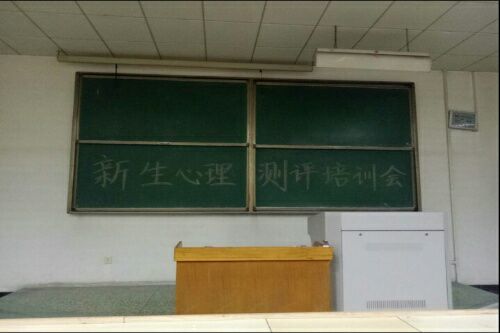 新生心理测评培训会